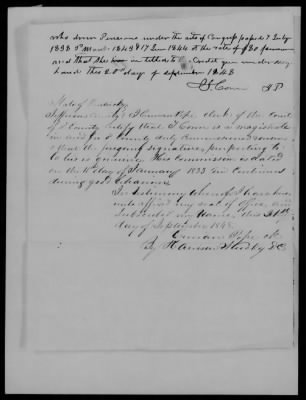 who drew Pensions under the acts of Congress passed 7 July
1838 3 March 1843 & 17 June 1844 at the rate of $80 per annum
and that she is entitled to Given under my
hand this 20th day of September 1848
J. Conn JP
State of Kentucky
Jefferson County Curran Pope, clerk of the County Court
of sd County certify that J Conn is a magistrate
in and for sd County duly commissioned & sworn
& that the foregoing signature, purporting to
be his is genuine. His Commission is dated
on the day of January 1833 and continues
during good behaviour
In testimony whereof I have here
unto affixed my seal of office and
subscribed my name, this
day of September 1848
Curran Pope clk
By